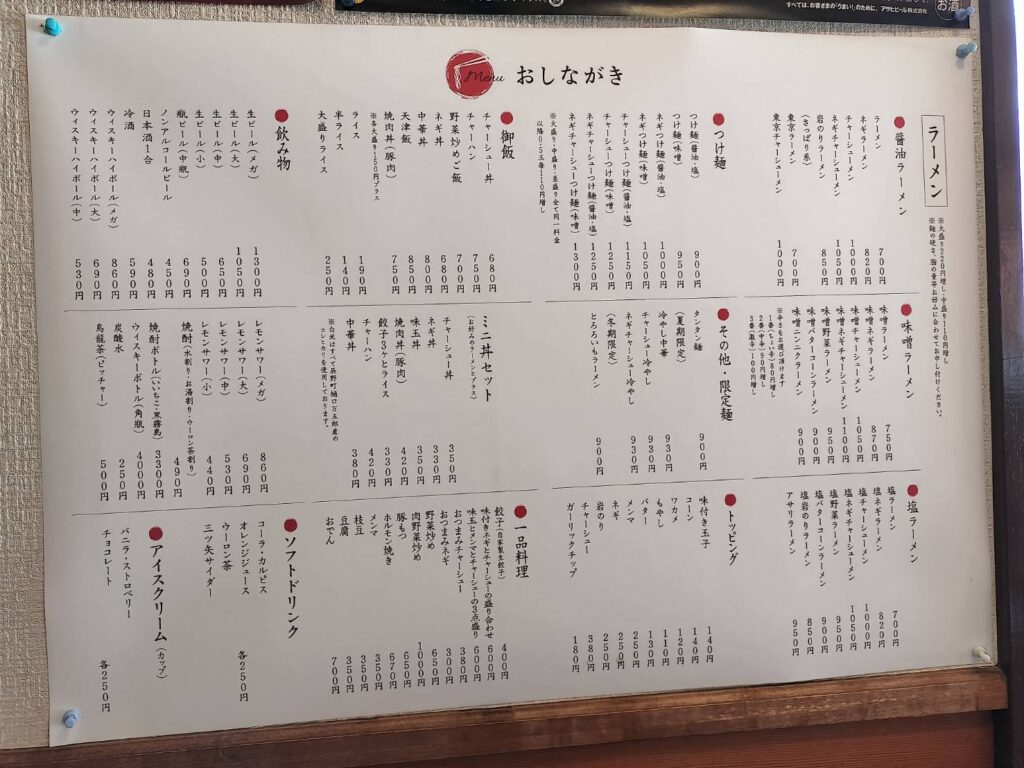 すべては、お客さまの「うまい!」のために。 アサヒビール株式会社
お酒
Menu おしながき
ラーメン
※大盛り220円増し・中盛り110円増し
※麺の硬さ、脂の量等お好みに合わせてお申し付けください。
●醤油ラーメン
ラーメン 700円
ネギラーメン 820円
チャーシューメン 1000円
ネギチャーシューメン 1050円
岩のりラーメン 850円
(さっぱり系)
東京ラーメン 700円
東京チャーシューメン 1000円
●つけ麺
つけ麺(醤油・塩) 900円
つけ麺(味噌) 950円
ネギつけ麺(醤油・塩) 1000円
ネギつけ麺(味噌) 1050円
チャーシューつけ麺(醤油・塩) 1150円
チャーシューつけ麺(味噌) 1200円
ネギチャーシューつけ麺(醤油・塩) 1250円
ネギチャーシューつけ麺(味噌) 1300円
※大盛り・中盛り・並盛り全て同一料金
以降0.5玉毎110円増し
●御飯
チャーシュー丼 680円
チャーハン 700円
野菜炒めご飯 750円
ネギ丼 680円
中華丼 800円
天津飯 850円
焼肉丼(豚肉) 750円
※各大盛り150円プラス
ライス 190円
半ライス 140円
大盛りライス 250円
●飲み物
生ビール(メガ) 1300円
生ビール(大) 1050円
生ビール(中) 650円
生ビール(小) 500円
瓶ビール(中瓶) 690円
ノンアルコールビール 450円
日本酒1合 480円
冷酒 590円
ウィスキーハイボール(メガ) 860円
ウィスキーハイボール(大) 690円
ウィスキーハイボール(中) 530円
●味噌ラーメン
味噌ラーメン 750円
味噌ネギラーメン 870円
味噌チャーシューメン 1050円
味噌ネギチャーシューメン 1100円
味噌野菜ラーメン 950円
味噌バターコーンラーメン 900円
味噌ニンニクラーメン 900円
※辛さをお選び頂けます
1番(ちょい辛)80円増し
2番(中辛)90円増し
3番(激辛)100円増し
●その他・限定麺
タンタン麺 900円
(夏期限定)
冷やし中華 930円
チャーシュー冷やし 930円
ネギチャーシュー冷やし 930円
(冬期限定)
とろろいもラーメン 900円
ミニ丼セット
(お好みのラーメンとプラス)
チャーシュー丼 350円
ネギ丼 330円
味玉丼 350円
焼肉丼(豚肉) 420円
餃子3ケとライス 330円
チャーハン 420円
中華丼 380円
※白米はすべて辰野町樋口万五郎産の
コシヒカリを使用しております。
レモンサワー(メガ) 860円
レモンサワー(大) 690円
レモンサワー(中) 530円
レモンサワー(小) 440円
焼酎(水割り・お湯割り・ウーロン茶割り) 490円
焼酎ボトル(いいちこ・黒霧島) 3300円
ウィスキーボトル(角瓶) 4000円
炭酸水 250円
烏龍茶(ピッチャー) 500円
●塩ラーメン
塩ラーメン 700円
塩ネギラーメン 820円
塩チャーシューメン 1000円
塩ネギチャーシューメン 1050円
塩野菜ラーメン 900円
塩バターコーンラーメン 950円
塩岩のりラーメン 850円
アサリラーメン 950円
●トッピング
味付き玉子 140円
コーン 140円
ワカメ 120円
もやし 110円
バター 130円
メンマ 250円
ネギ 250円
岩のり 250円
チャーシュー 380円
ガーリックチップ 180円
●一品料理
餃子(自家製生餃子) 400円
味付きネギとチャーシューの盛り合わせ 600円
味玉とメンマとチャーシューの3点盛り 600円
おつまみチャーシュー 380円
おつまみネギ 300円
野菜炒め 650円
肉野菜炒め 1000円
豚もつ 650円
ホルモン焼き 670円
メンマ 350円
枝豆 350円
豆腐 350円
おでん 700円
●ソフトドリンク
コーラ・カルピス
オレンジジュース
ウーロン茶
三ツ矢サイダー
各250円
●アイスクリーム(カップ)
バニラ・ストロベリー
チョコレート
各250円